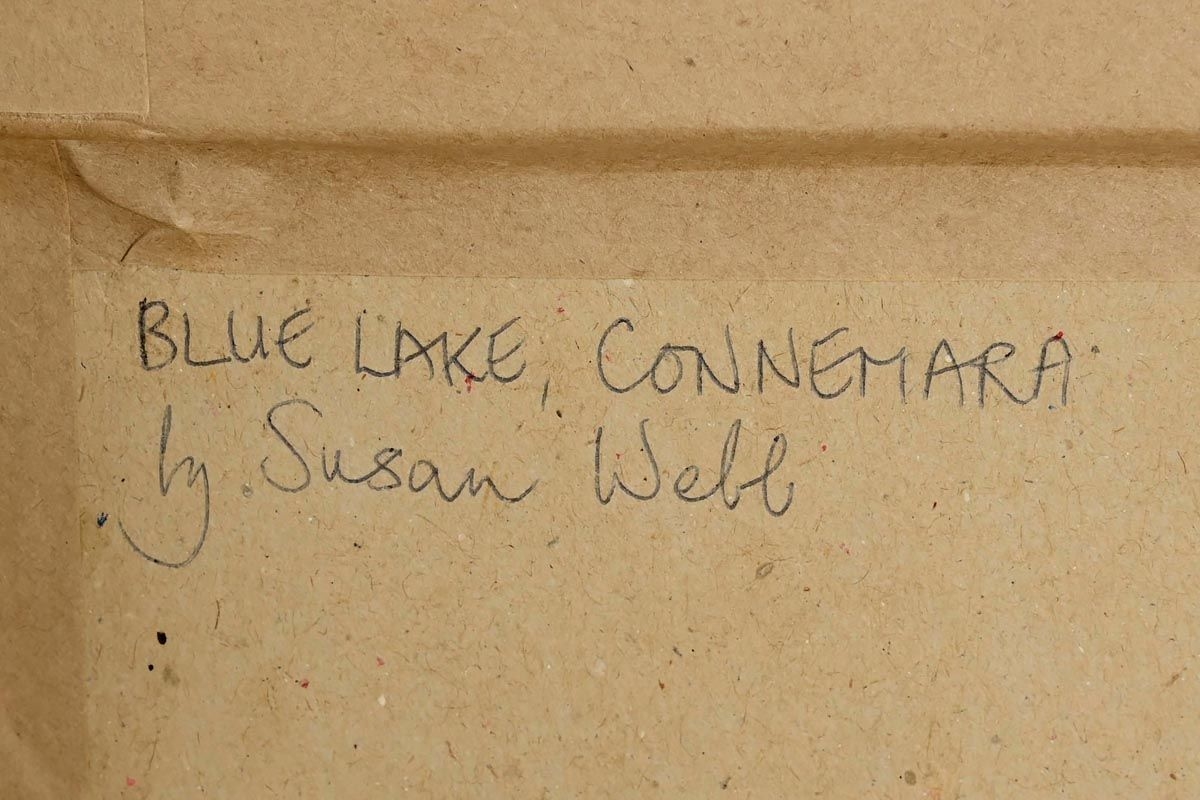 BLUE LAKE, CONNEMARA
by Susan Webb